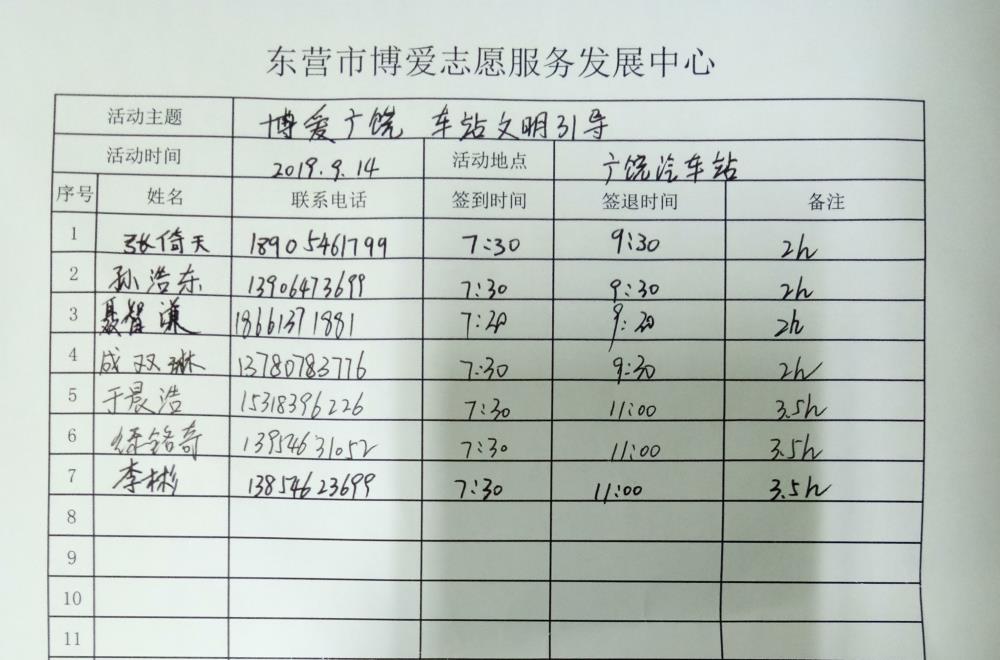 东营市博爱志愿服务发展中心
活动主题 博爱广饶 车站文明引导
活动时间 2019.9.14 活动地点 广饶汽车站
序号 姓名 联系电话 签到时间 签退时间 备注
1 张倚天 18905461799 7:30 9:30 2h
2 孙浩东 13906473699 7:30 9:30 2h
3 聂智谦 18661371881 7:30 9:30 2h
4 成双琳 13780783776 7:30 9:30 2h
5 于晨浩 15318396226 7:30 11:00 3.5h
6 徐铭奇 13954631052 7:30 11:00 3.5h
7 李彬 13854623699 7:30 11:00 3.5h
8
9
10
11